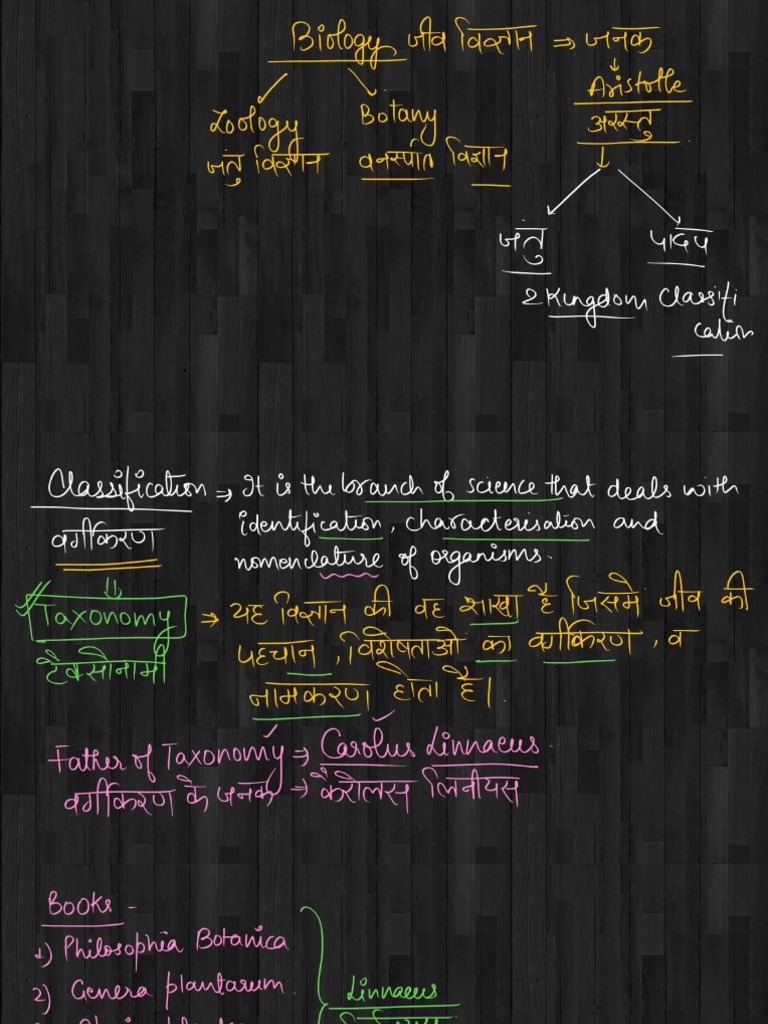 Biology जीव विज्ञान ⇒ जनक
Aristotle
अरस्तु
Zoology Botany
जंतु विज्ञान वनस्पति विज्ञान
जंतु पादप
2 Kingdom Classifi
cation
Classification ⇒ It is the branch of science that deals with
वर्गीकरण identification, characterisation and
nomenclature of organisms.
Taxonomy → यह विज्ञान की वह शाखा है जिसमे जीव की
टैक्सोनामी पहचान, विशेषताओ का वर्गीकरण, व
नामकरण होता है।
Father of Taxonomy ⇒ Carolus Linnaeus.
वर्गीकरण के जनक → कैरोलस लिनीयस
Books -
1) Philosophia Botanica
2) Genera plantarum.
Linnaeus